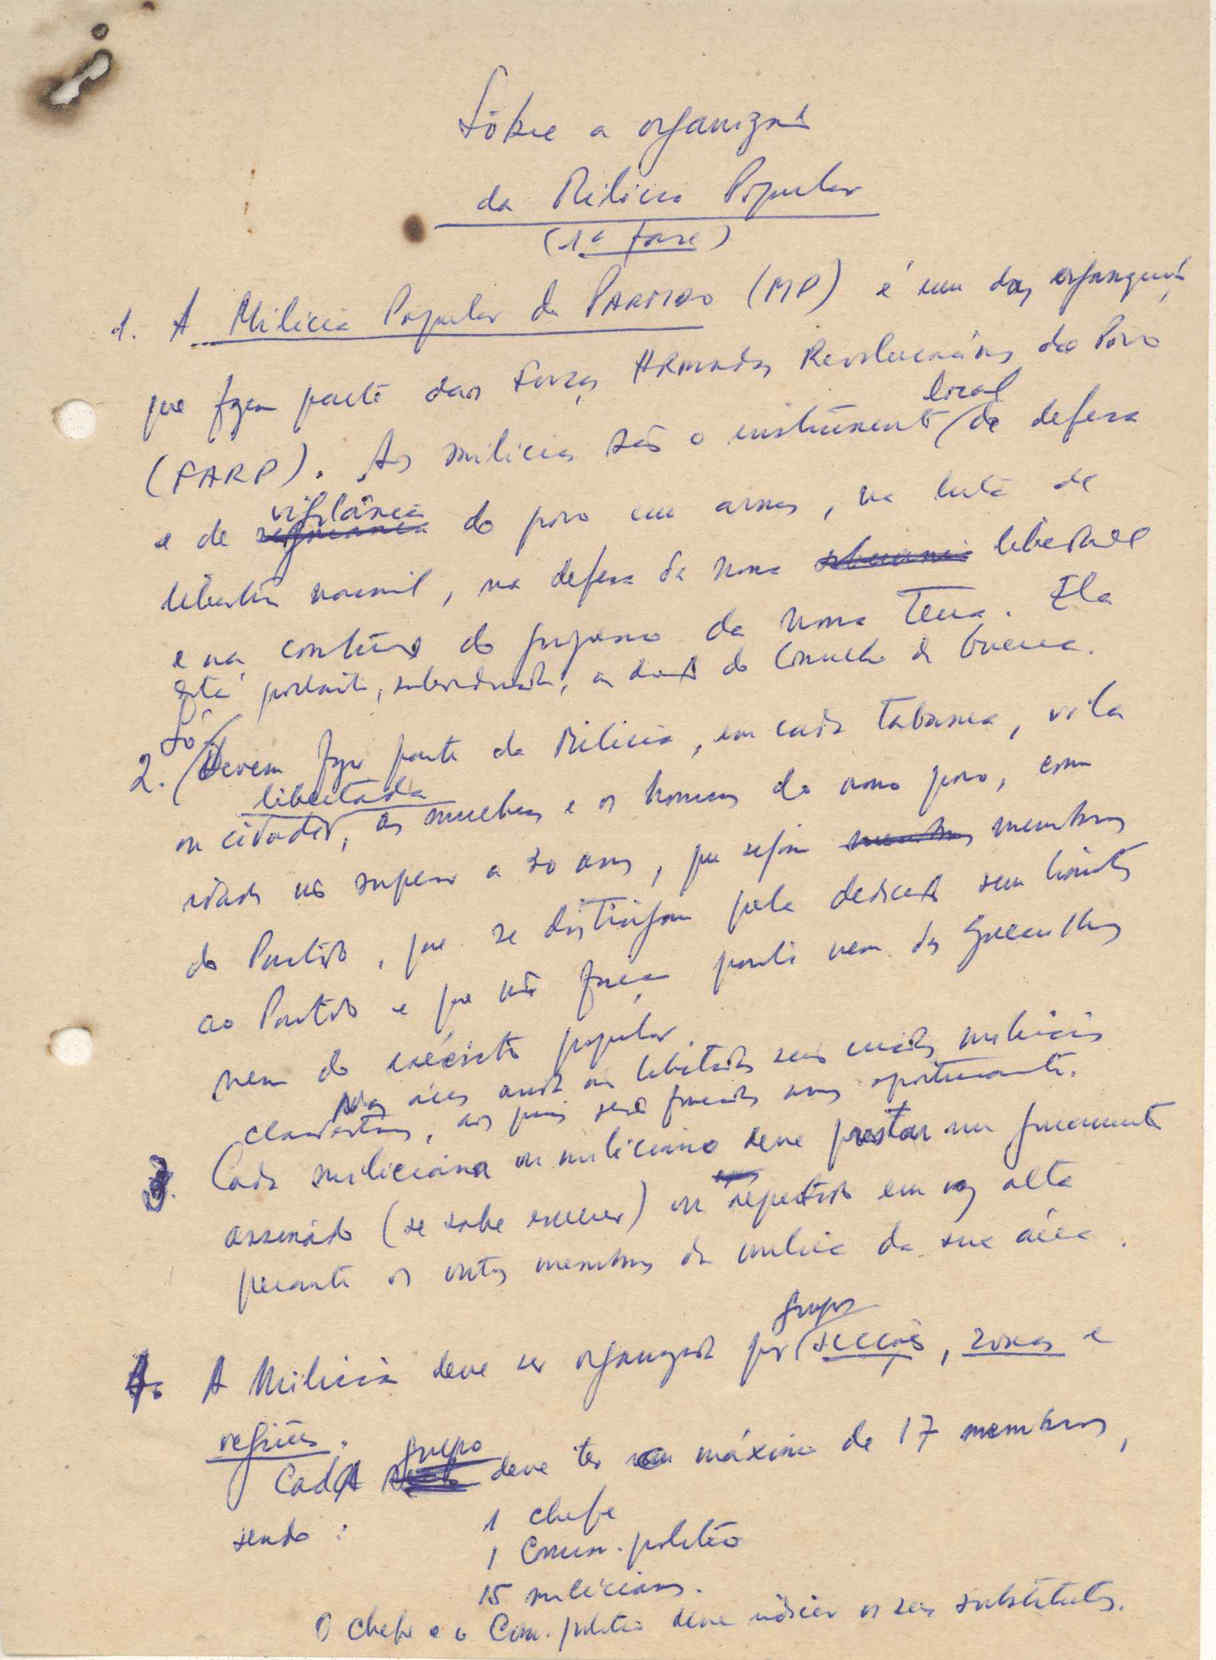 Sôbre a organização
da Milícia Popular
(1ª fase)
1. A Milícia Popular do PARTIDO (MP) é um dos
que fazem parte das Forças ARmadas Revolucionárias do Povo
(FARP). As milícias são o instrumento local de defesa
e de vigilância do povo em armas, na luta de
libertação nacional, na defesa da nossa liberdade
e na do progresso da nossa Terra. Ela
está, portanto, subordinada, do Conselho de Guerra.
2. Só devem fazer parte da Milícia, em cada tabanca, vila
ou cidade libertada, as mulheres e os homens do nosso povo, com
idade não superior a 50 anos, que sejam membros
do Partido, que se distingam pela dedicação sem limites
ao Partido e que não façam parte nem das Guerrilhas
nem do exército popular.
Nas áreas ainda não libertadas serão criadas milícias
clandestinas, às quais serão fornecidas armas oportunamente.
3. Cada miliciana ou miliciano deve prestar um juramento
assinado (se sabe escrever) ou repetido em voz alta
perante os outros membros da milícia da sua área.
4. A Milícia deve ser organizada por grupos, secções, zonas e
regiões.
Cada grupo deve ter um máximo de 17 membros,
sendo:
1 chefe
1 Comis. político
15 milicianos.
O chefe e o Com. político deve indicar os seus substitutos.